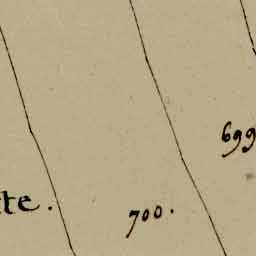 699
te.
700.